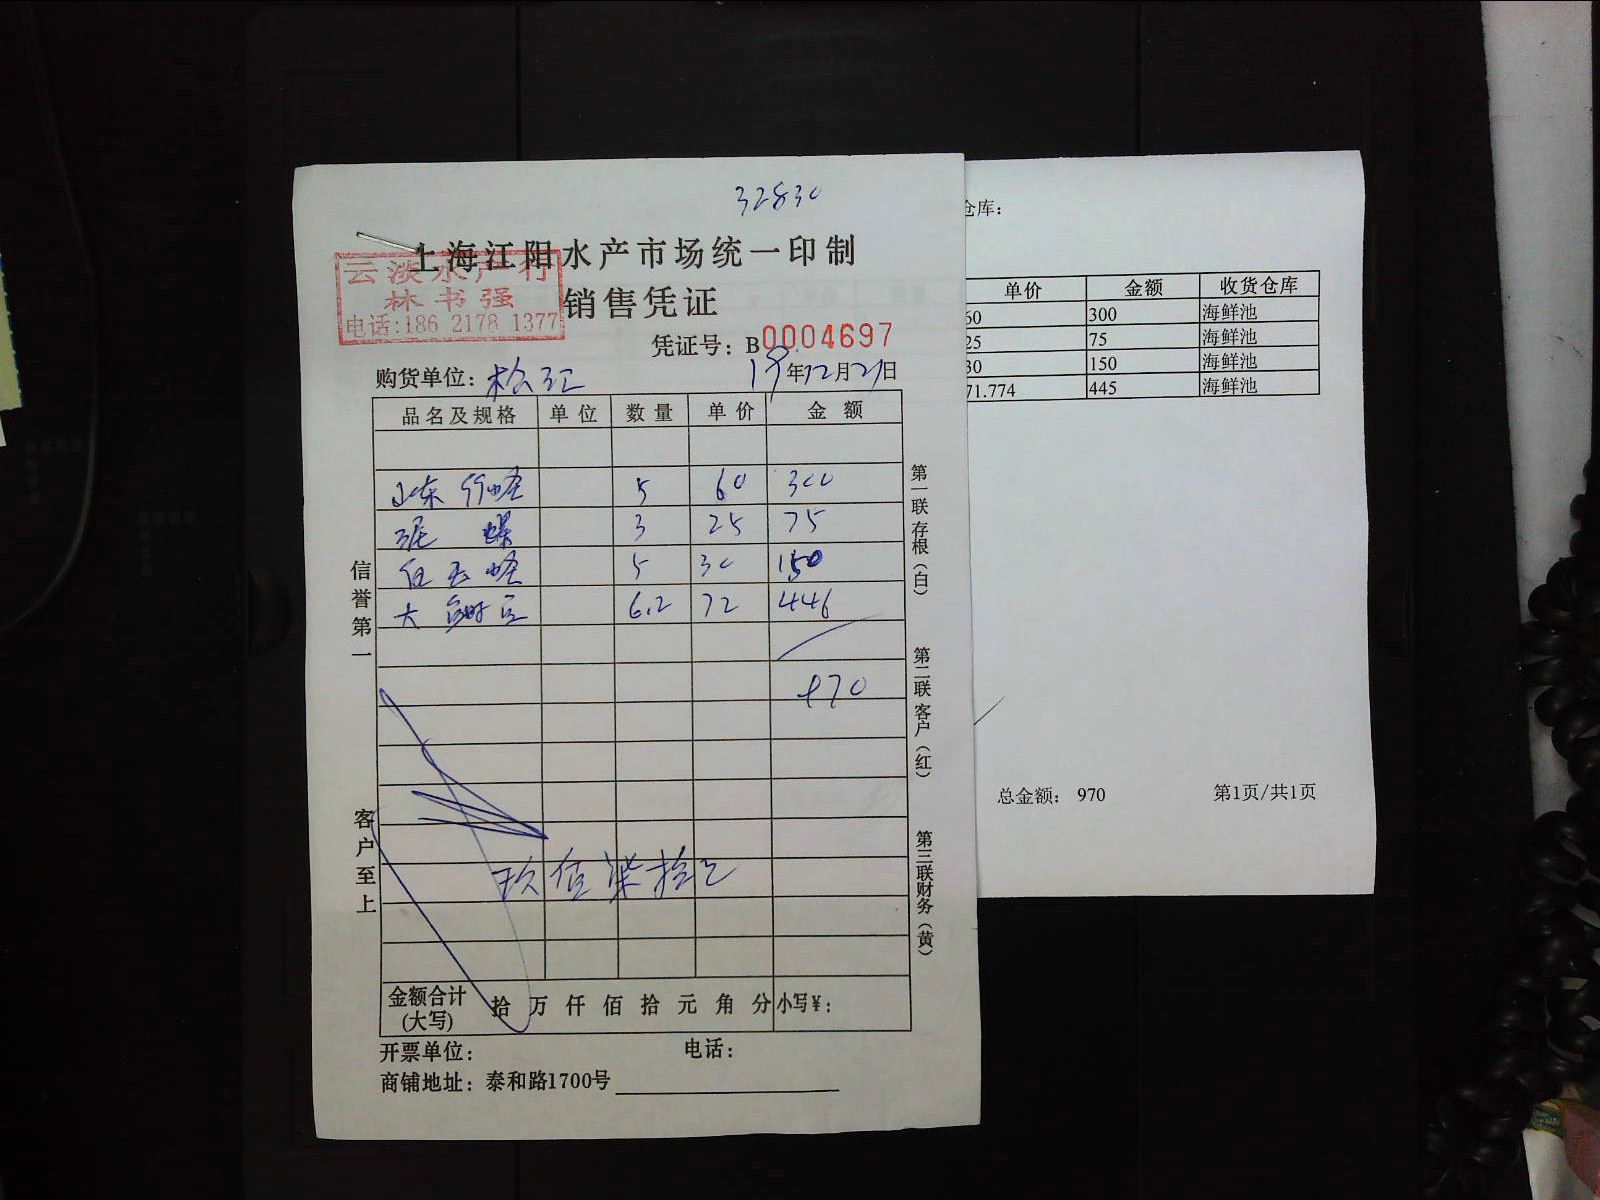 32830
上海江阳水产市场统一印制
云淡水产行
林书强
电话:186 2178 1377
销售凭证
凭证号：B0004697
购货单位：松江 19年12月21日
品名及规格 单位 数量 单价 金额
山东 5 60 300
泥螺 3 25 75
5 30 150
大 6.2 72 446
970
玖佰柒拾元
金额合计(大写) 拾 万 仟 佰 拾 元 角 分 小写¥：
开票单位： 电话：
商铺地址：泰和路1700号
信誉第一
客户至上
第一联存根（白）
第二联客户（红）
第三联财务（黄）
仓库：
单价 金额 收货仓库
60 300 海鲜池
25 75 海鲜池
30 150 海鲜池
71.774 445 海鲜池
总金额： 970 第1页/共1页